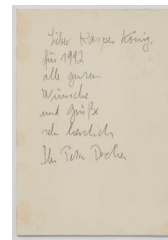 Lieber Kasper König,
für 1992
alle guten
Wünsche
und Grüße
sehr herzlich
Ihr Peter